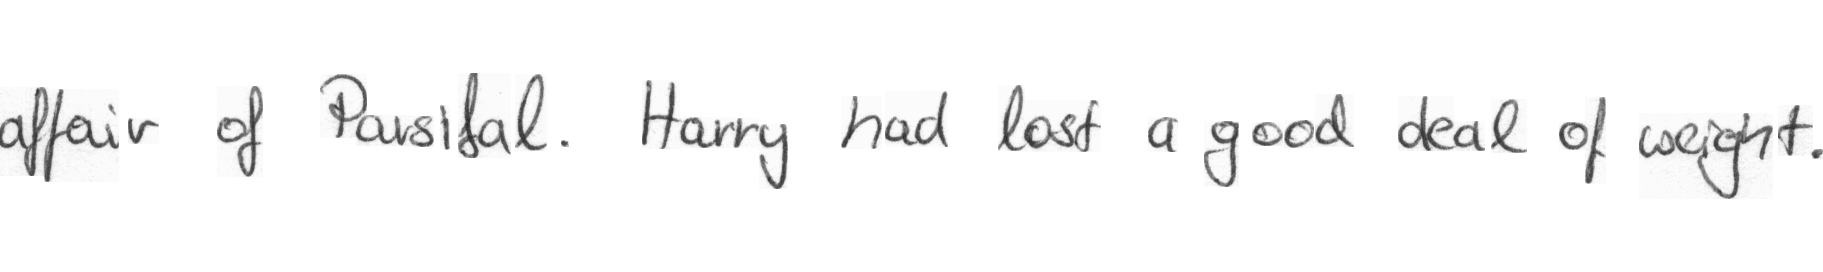 affair of Parsifal. Harry had lost a good deal of weight.